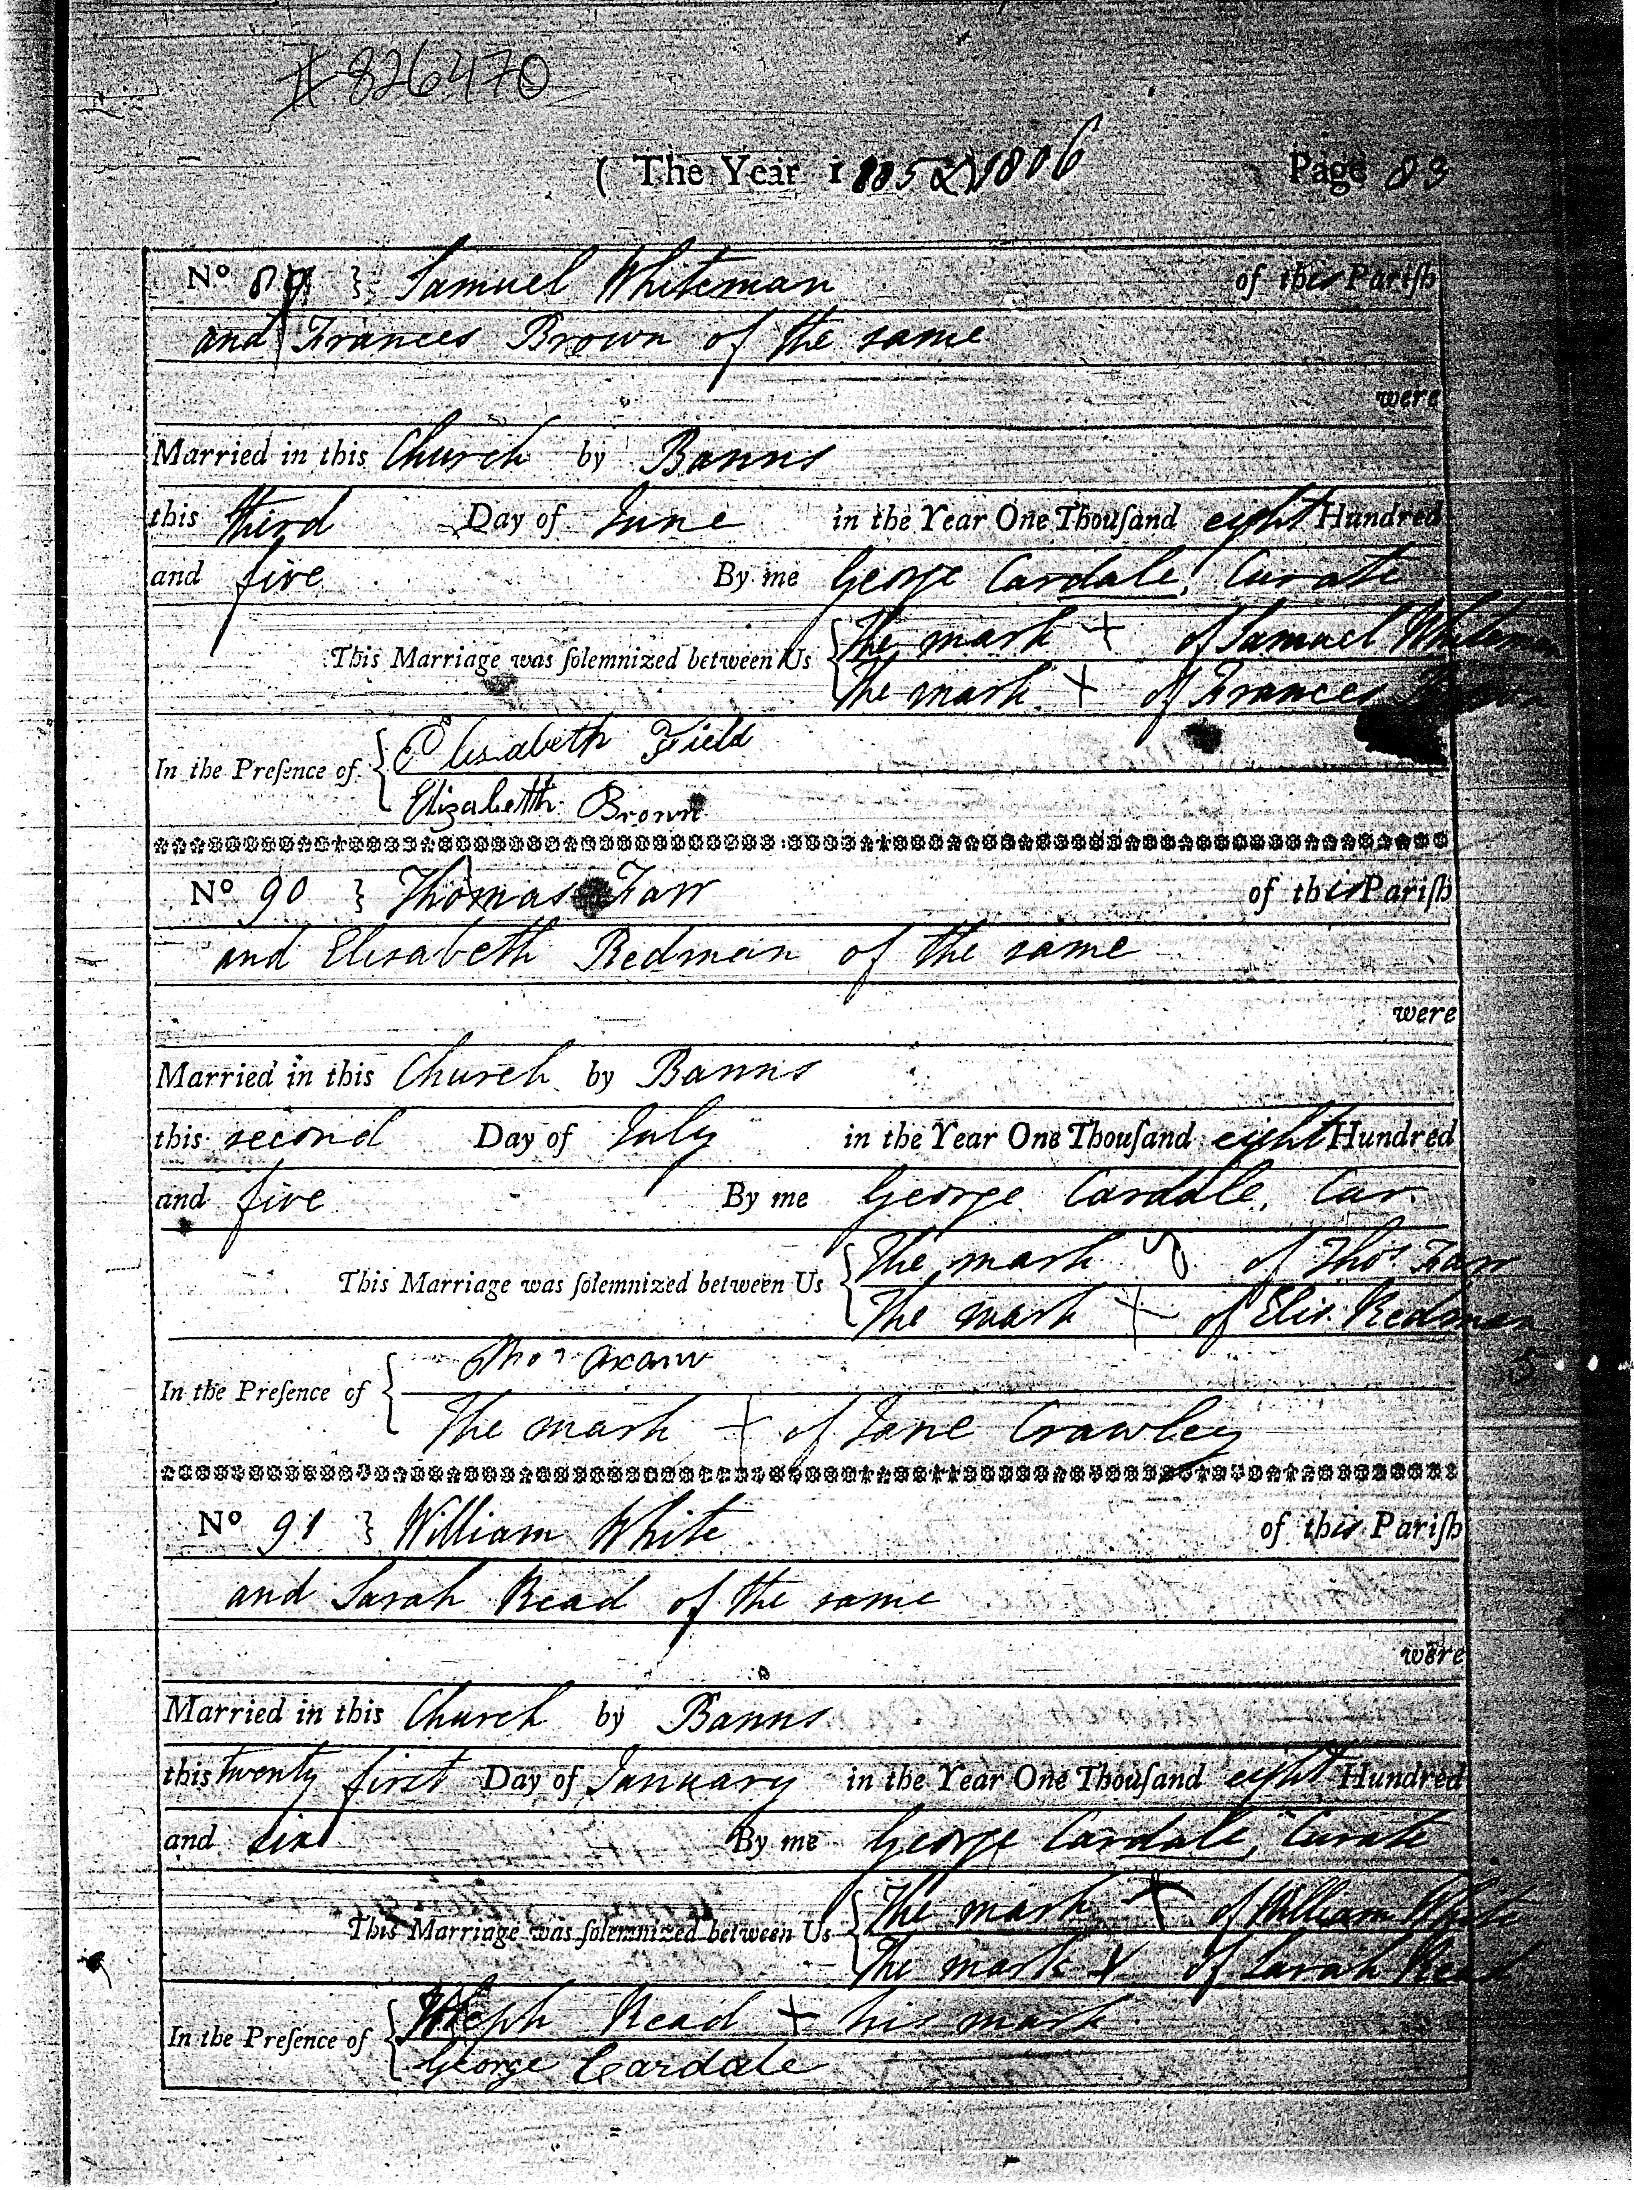 # 826470
( The Year 1805 & 1806 Page 83
No 89 } Samuel Whiteman of this Pariſh
and Frances Brown of the same
were
Married in this Church by Banns
this third Day of June in the Year One Thouſand eight Hundred
and five By me George Cardale, Curate
This Marriage was ſolemnized between Us { The mark + of Samuel Whiteman
The mark + of Frances Brown
In the Preſence of { Elisabeth Field
Elizabeth Brown
No 90 } Thomas Farr of this Pariſh
and Elisabeth Redman of the same
were
Married in this Church by Banns
this second Day of July in the Year One Thouſand eight Hundred
and five By me George Cardale, Cur.
This Marriage was ſolemnized between Us { The mark of Thos. Farr
The mark + of Elis. Redman
In the Preſence of { Thos
The mark + of Jane Crawley
No 91 } William White of this Pariſh
and Sarah Read of the same
were
Married in this Church by Banns
this twenty first Day of January in the Year One Thouſand eight Hundred
and six By me George Cardale, Curate
This Marriage was ſolemnized between Us { The mark + of William White
The mark + of Sarah Read
In the Preſence of { Joseph Read + his mark.
George Cardale